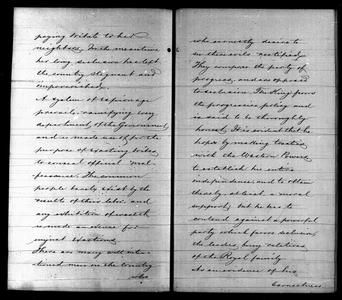 paying tribute to her
neighbors. In the meantime
her long seclusion has left
the country stagnant and
impoverished.
A system of espionage
prevails, ramifying every
department of the Government
and is made use of for the
purpose of exacting bribes
to conceal official mal-
feasance. The common
people barely exist by the
results of their labor, and
any exhibition of wealth
is made an excuse for
unjust exactions.
There are many well inten-
tioned men in the country
who
who earnestly desire to
see these evils rectified.
They compose the party of
progress, and are opposed
to seclusion. The King favors
the progressive policy and
is said to be thoroughly
honest. It is evident that he
hopes by making treaties
with the Western Powers,
to establish his entire
independence, and to obtain
thereby at least a moral
support; but he has to
contend against a powerful
party which favors seclusion,
the leaders being relatives
of the Royal family.
As an evidence of his
earnestness